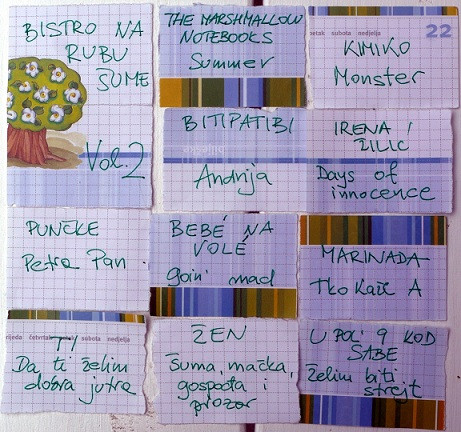 BISTRO NA
RUBU
ŠUME
Vol. 2
THE MARSHMALLOW
NOTEBOOKS
Summer
22
petak subota nedjelja
KIMIKO
Monster
BITIPATIBI
Andrija
bilješke
IRENA
ŽILIĆ
Days of
innocence
PUNČKE
Petra Pan
BEBÈ NA
VOLÉ
goin' mad
MARINADA
Tko kaže A
srijeda četvrtak subota nedjelja
TI
Da ti želim
dobra jutra
ŽEN
Šuma, mačka,
gospođa i
prozor
U POL' 9 KOD
SABE
Želim biti
strejt